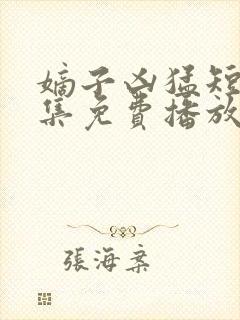 嫡子凶猛短
集免費播放
張海案